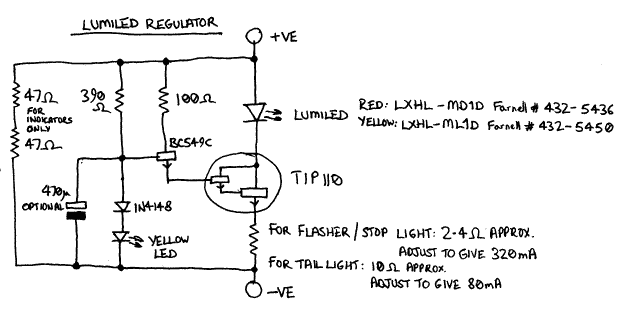 LUMILED REGULATOR
+VE
47Ω
FOR
INDICATORS
ONLY
47Ω
390
Ω
100Ω
LUMILED
RED: LXHL-MD1D Farnell # 432-5436
YELLOW: LXHL-ML1D Farnell # 432-5450
BC549C
TIP110
470µ
OPTIONAL
1N4148
YELLOW
LED
FOR FLASHER/STOP LIGHT: 2.4Ω APPROX.
ADJUST TO GIVE 320mA
FOR TAIL LIGHT: 10Ω APPROX.
ADJUST TO GIVE 80mA
-VE